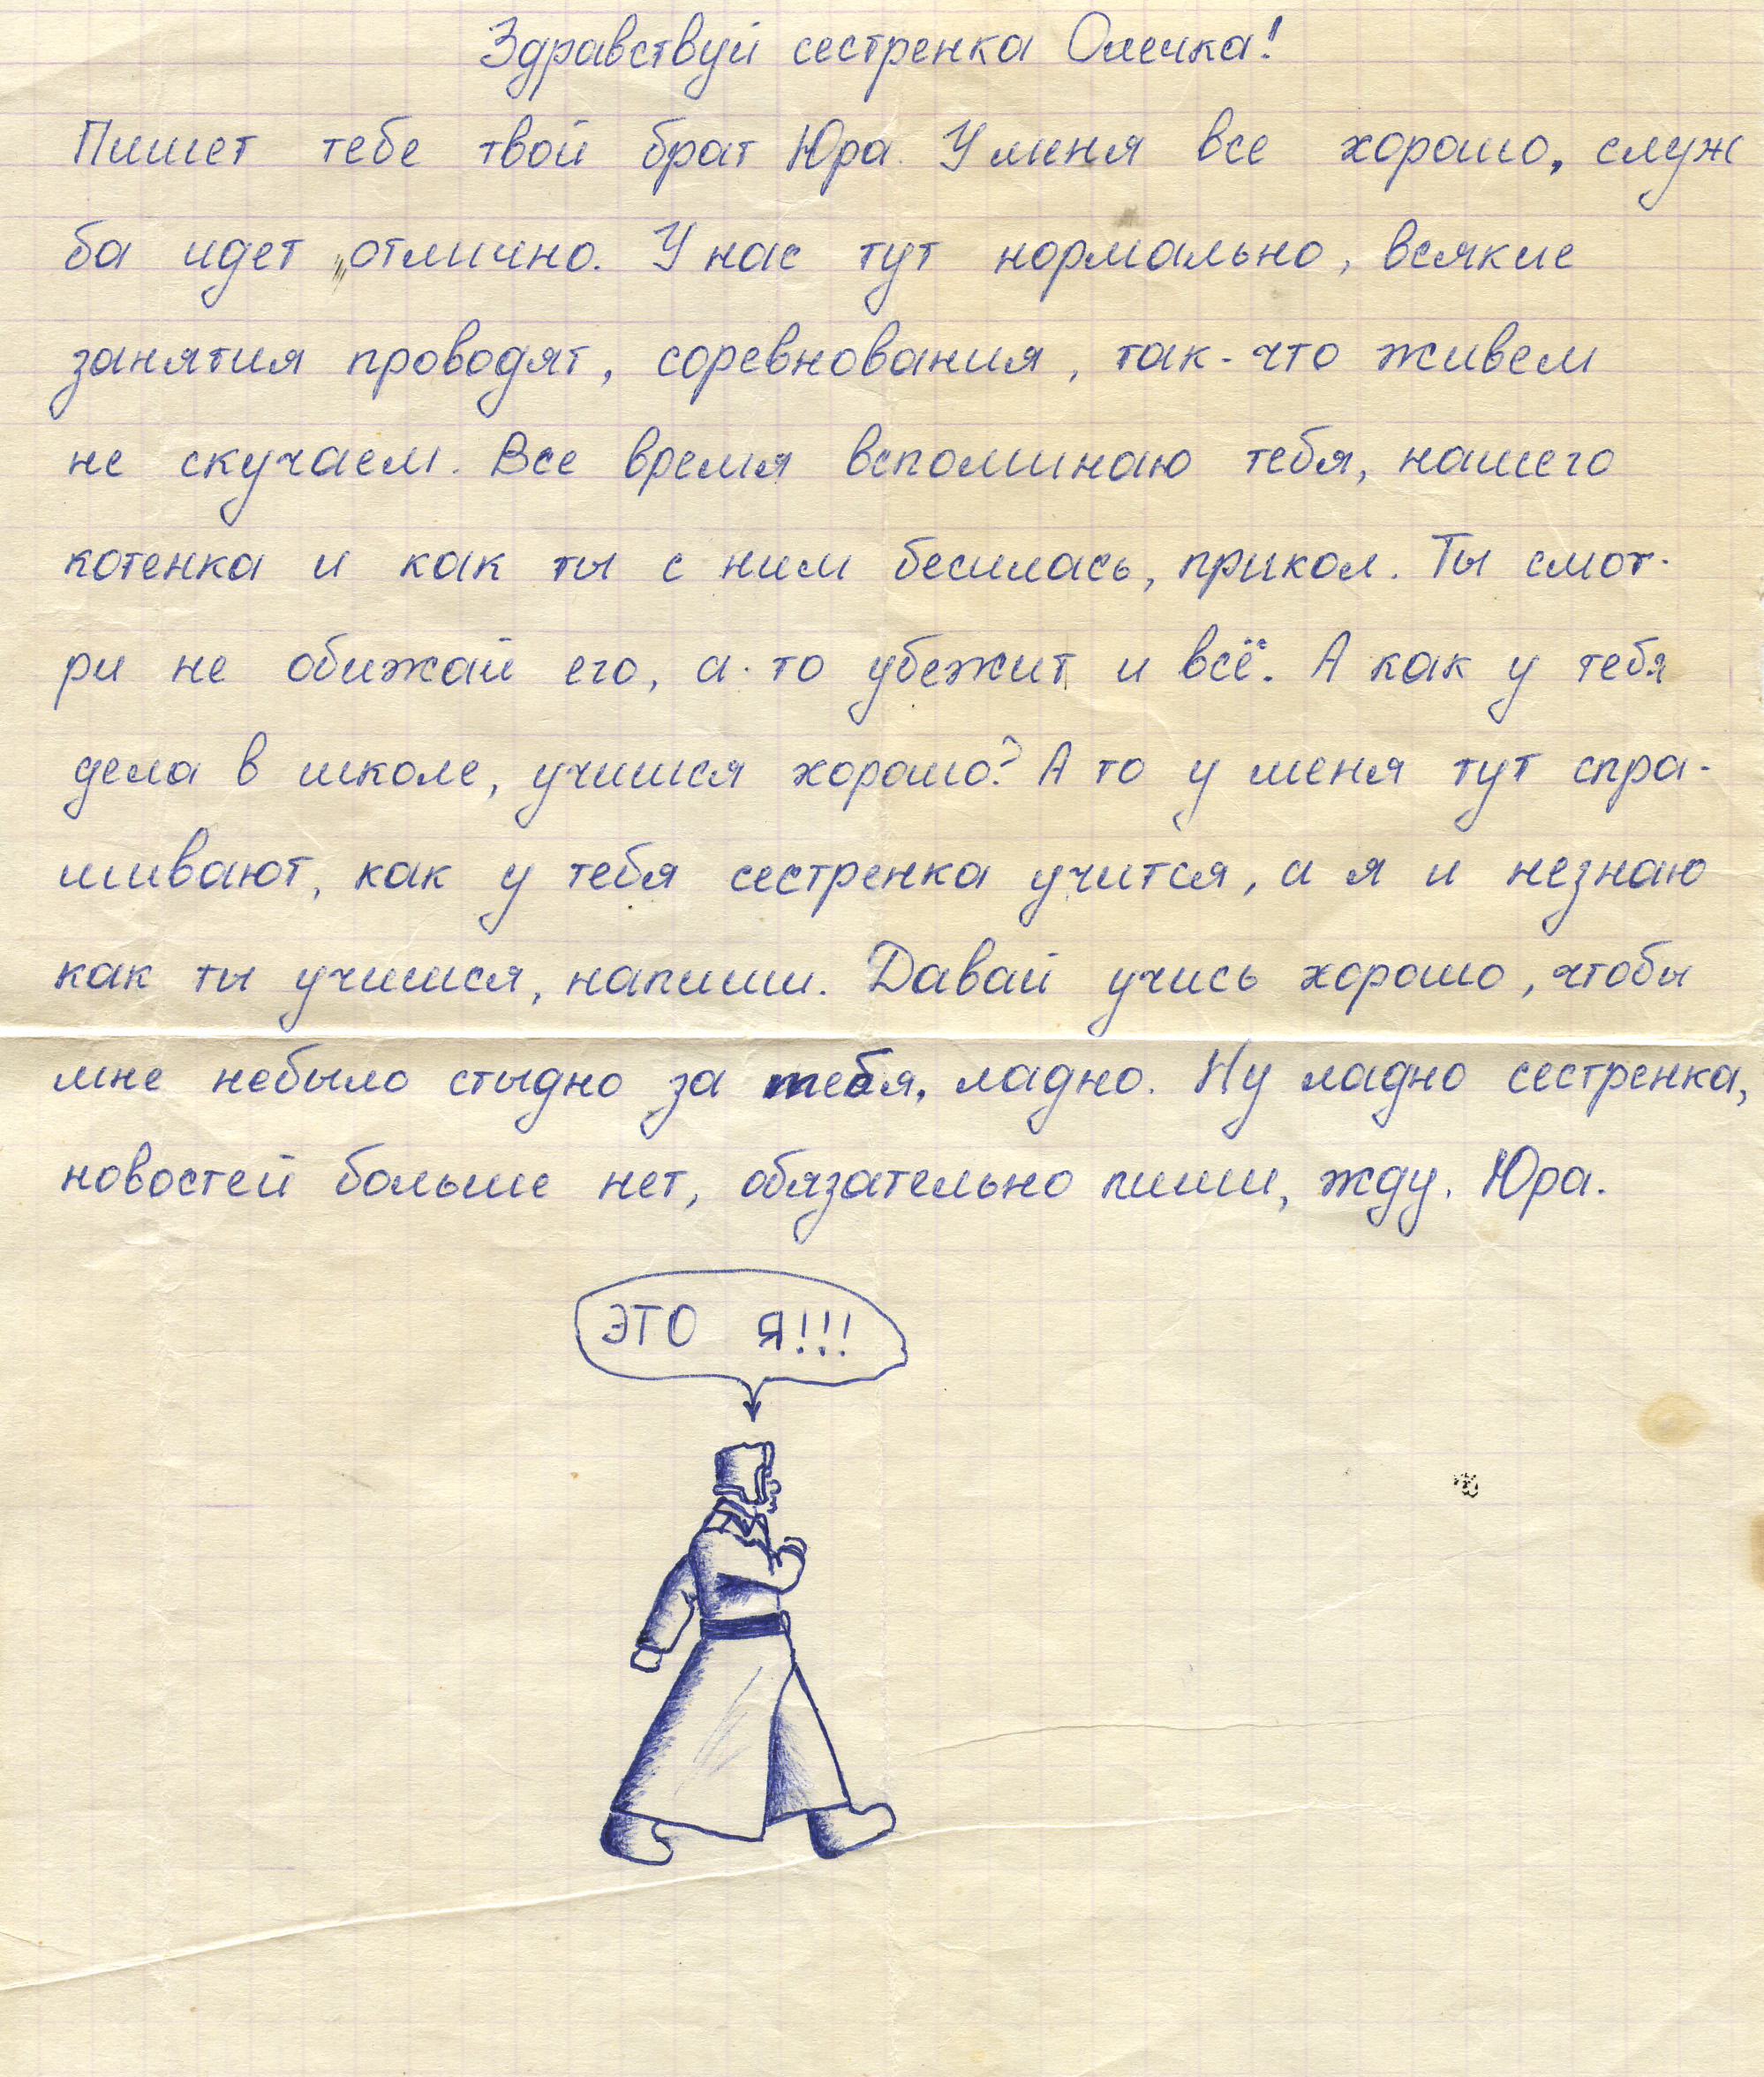 Здравствуй сестренка Олечка!
Пишет тебе твой брат Юра. У меня все хорошо, служ
ба идет отлично. У нас тут нормально, всякие
занятия проводят, соревнования, так-что живем
не скучаем. Все время вспоминаю тебя, нашего
котенка и как ты с ним бесилась, прикол. Ты смот-
ри не обижай его, а-то убежит и всё. А как у тебя
дела в школе, учишся хорошо? А то у меня тут спра-
шивают, как у тебя сестренка учится, а я и незнаю
как ты учишся, напиши. Давай учись хорошо, чтобы
мне небыло стыдно за тебя, ладно. Ну ладно сестренка,
новостей больше нет, обязательно пиши, жду. Юра.
ЭТО Я!!!